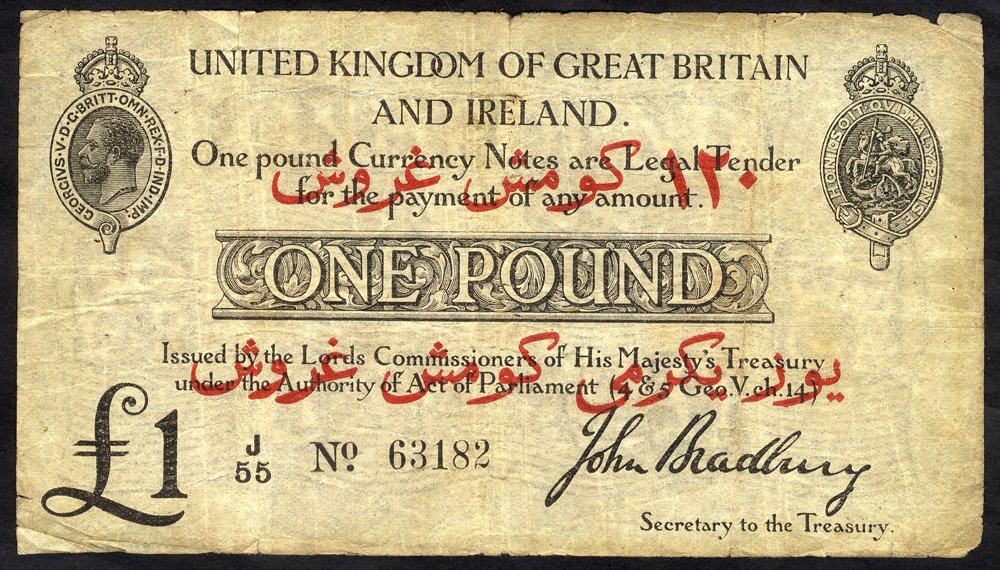 UNITED KINGDOM OF GREAT BRITAIN
AND IRELAND.
GEORGIVS·V·D·G·BRITT·OMN·REX·F·D·IND·IMP·
HONI·SOIT·QVI·MAL·Y·PENSE
One pound Currency Notes are Legal Tender
١٢٠ كومش غروش
for the payment of any amount.
ONE POUND
Issued by the Lords Commissioners of His Majesty's Treasury
يوز يكرمى كومش غروش
under the Authority of Act of Parliament (4 & 5 Geo.V.ch.14)
£1
J
55
Nº 63182
John Bradbury
Secretary to the Treasury.